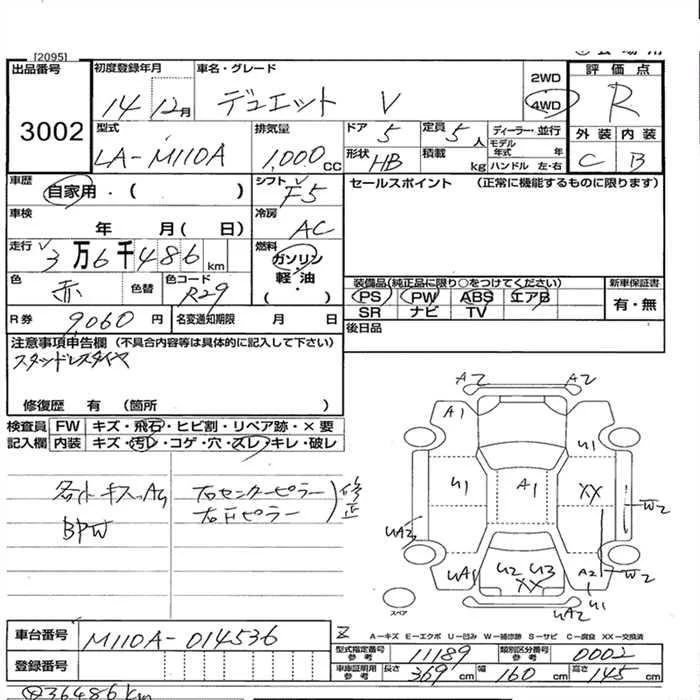 [2095]
出品番号 初度登録年月 車名・グレード 2WD 評価点
3002 14 12月 デュエット V 4WD R
型式 排気量 ドア 定員 ディーラー・並行 外装 内装
LA-M110A 1,000cc 5 5人 モデル年式 年 C B
形状 HB 積載 kg ハンドル 左・右
車歴 自家用・( ) シフト F5 セールスポイント (正常に機能するものに限ります)
車検 年 月( 日) 冷房 AC
走行 3万6千486km 燃料 ガソリン・軽・油・( )
色 赤 色替 色コード R29 装備品(純正品に限り○をつけてください) 新車保証書
PS PW ABS エアB 有・無
SR ナビ TV
R券 9,060円 名変通知期限 月 日 後日品
注意事項申告欄 (不具合内容等は具体的に記入して下さい)
スタッドレスタイヤ
修復歴 有 (箇所 )
検査員 FW キズ・飛石・ヒビ割・リペア跡・×要
記入欄 内装 キズ・汚レ・コゲ・穴・スレ・キレ・破レ
BPW
右センターピラー
右Fピラー
修正
A2 A2
A1 U1
U1 A1 XX W2
UA2
UA1 U2 U3 A2 W2
XX U1
UA2
スペア
A−キズ E−エクボ U−凹み W−補修跡 S−サビ C−腐食 XX−交換済
車台番号 M110A-014536
登録番号
型式指定番号 参考 11189 類別区分番号 参考 0002
車庫証明用 参考 長さ 369cm 幅 160cm 高さ 145cm
36486km